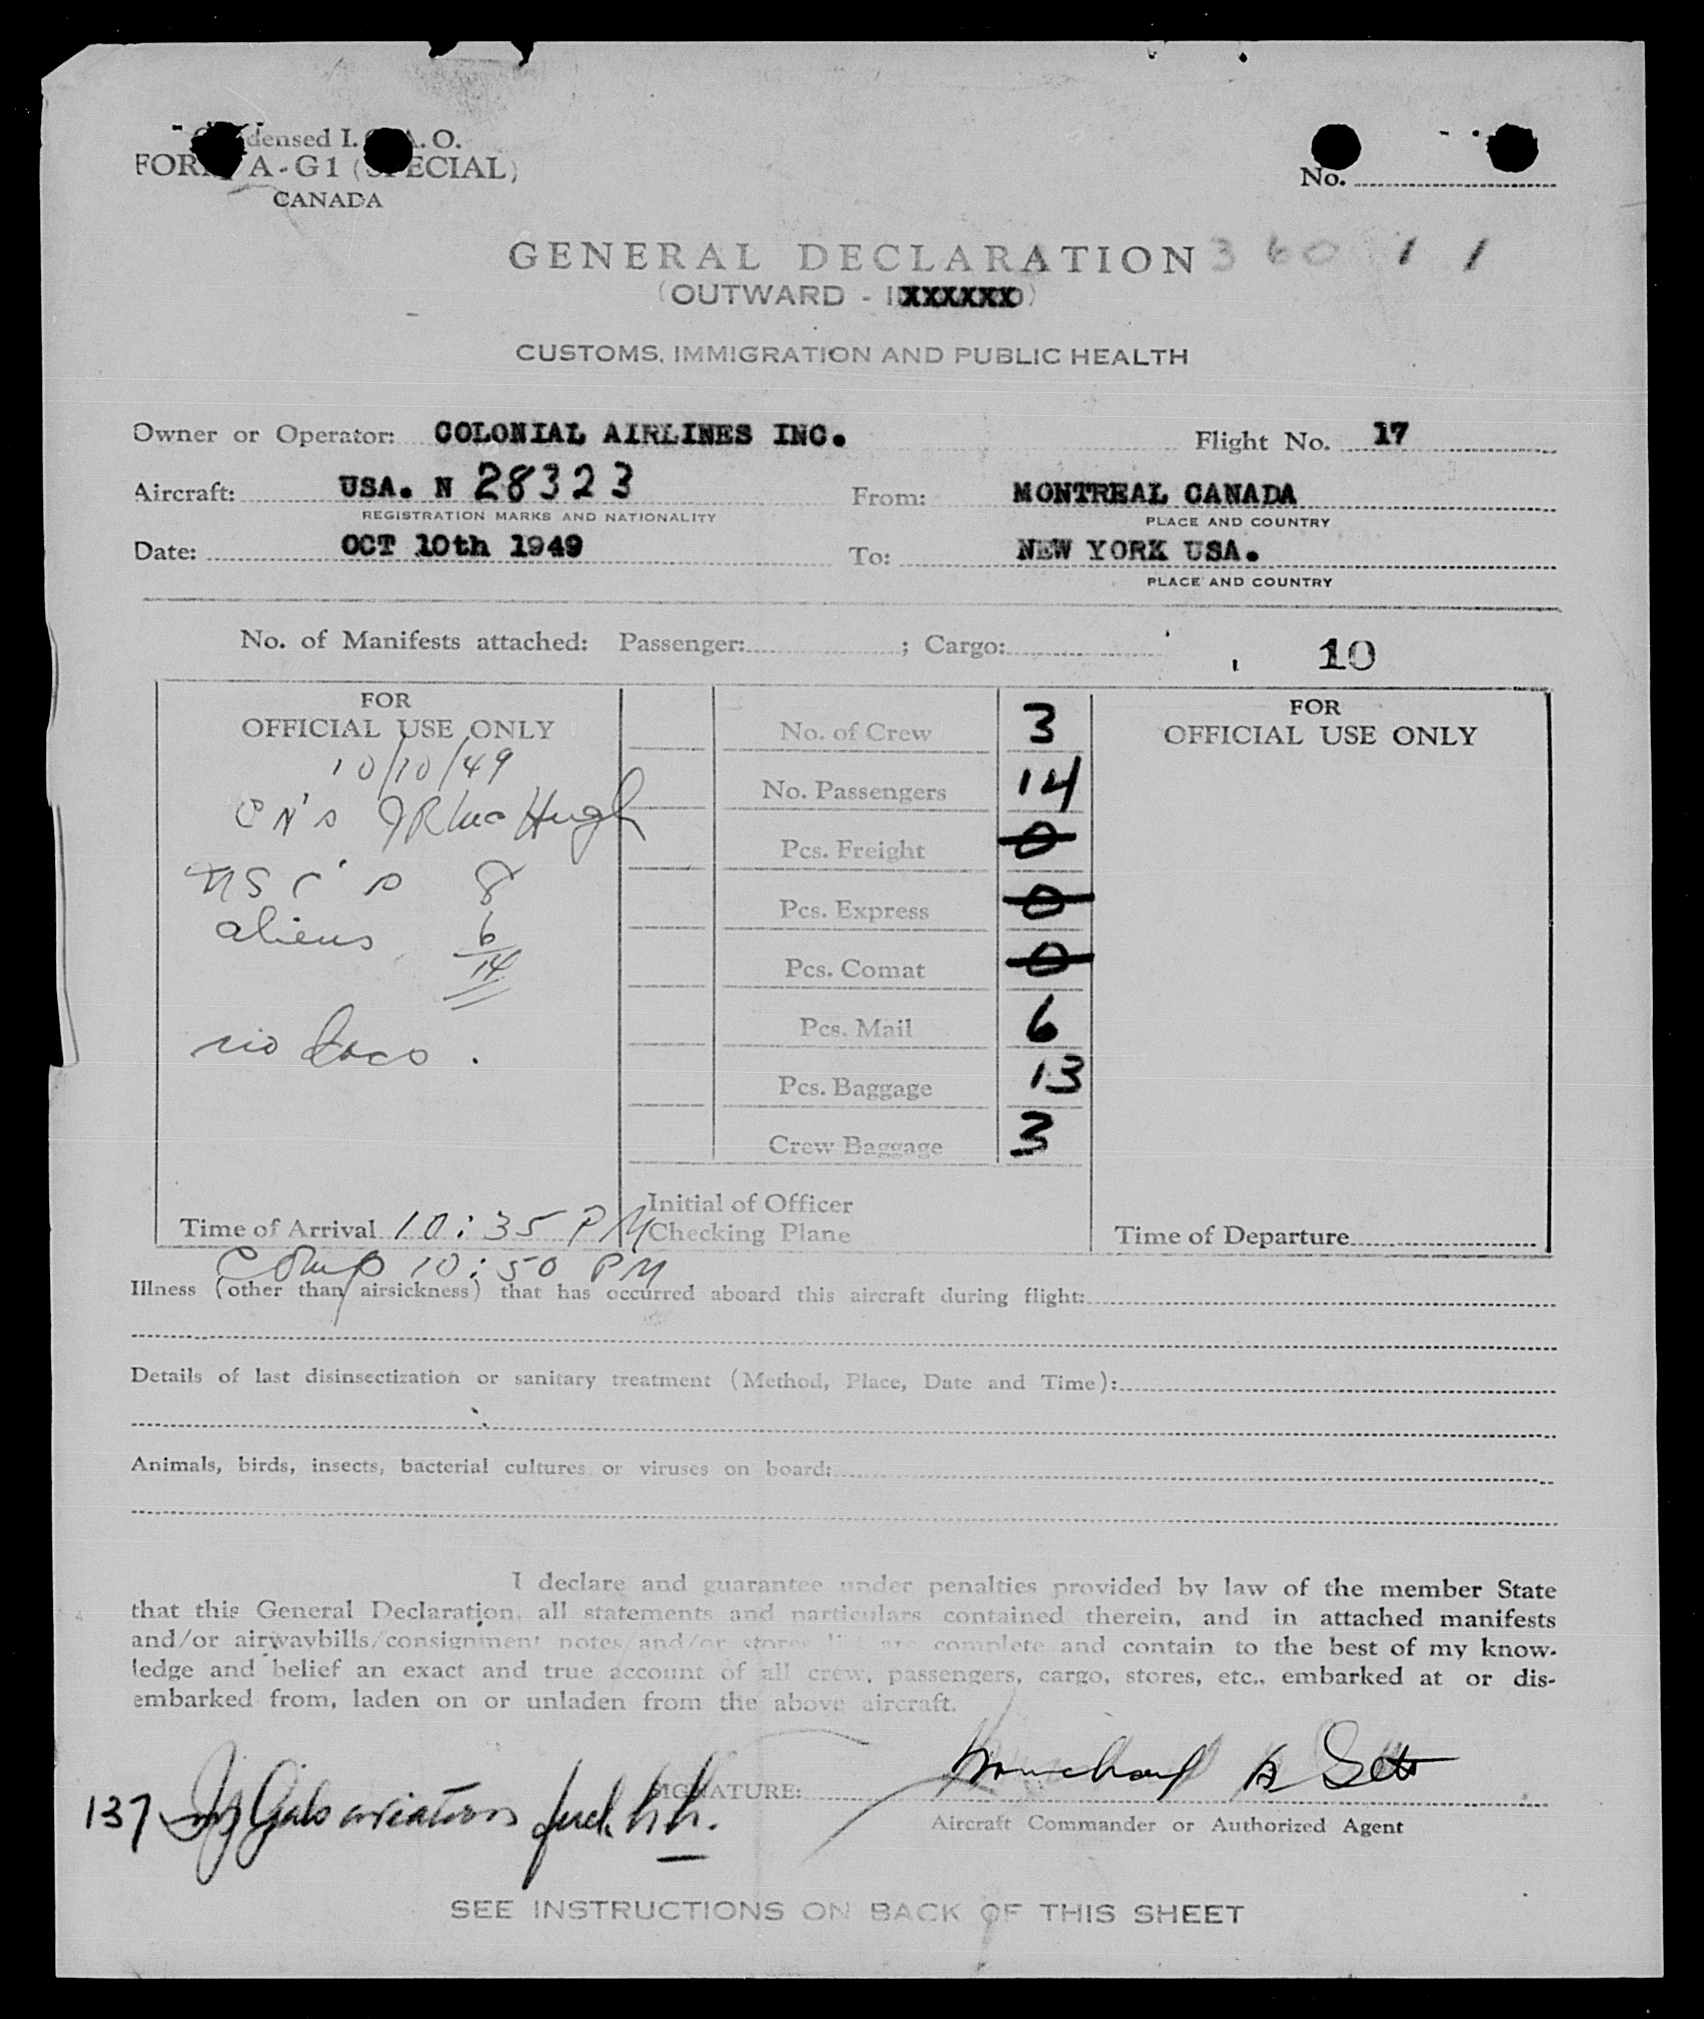 densed I. A. O.
FORM A-G1 (SPECIAL)
CANADA
No.
GENERAL DECLARATION 360 1 1
(OUTWARD - IXXXXXXD)
CUSTOMS, IMMIGRATION AND PUBLIC HEALTH
Owner or Operator: COLONIAL AIRLINES INC. Flight No. 17
Aircraft: USA. N 28323 From: MONTREAL CANADA
REGISTRATION MARKS AND NATIONALITY PLACE AND COUNTRY
Date: OCT 10th 1949 To: NEW YORK USA.
PLACE AND COUNTRY
No. of Manifests attached: Passenger: ; Cargo: 10
FOR
OFFICIAL USE ONLY
10/10/49
McHugh
USC's 8
aliens 6
14
no docs.
Time of Arrival 10:35 PM
Comp 10:50 PM
No. of Crew 3
No. Passengers 14
Pcs. Freight 0
Pcs. Express 0
Pcs. Comat 0
Pcs. Mail 6
Pcs. Baggage 13
Crew Baggage 3
Initial of Officer
Checking Plane
FOR
OFFICIAL USE ONLY
Time of Departure
Illness (other than airsickness) that has occurred aboard this aircraft during flight:
Details of last disinsectization or sanitary treatment (Method, Place, Date and Time):
Animals, birds, insects, bacterial cultures or viruses on board:
I declare and guarantee under penalties provided by law of the member State
that this General Declaration, all statements and particulars contained therein, and in attached manifests
and/or airwaybills/consignment notes/and/or stores list are complete and contain to the best of my know-
ledge and belief an exact and true account of all crew, passengers, cargo, stores, etc., embarked at or dis-
embarked from, laden on or unladen from the above aircraft.
SIGNATURE:
Aircraft Commander or Authorized Agent
137 Gals aviation fuel
SEE INSTRUCTIONS ON BACK OF THIS SHEET